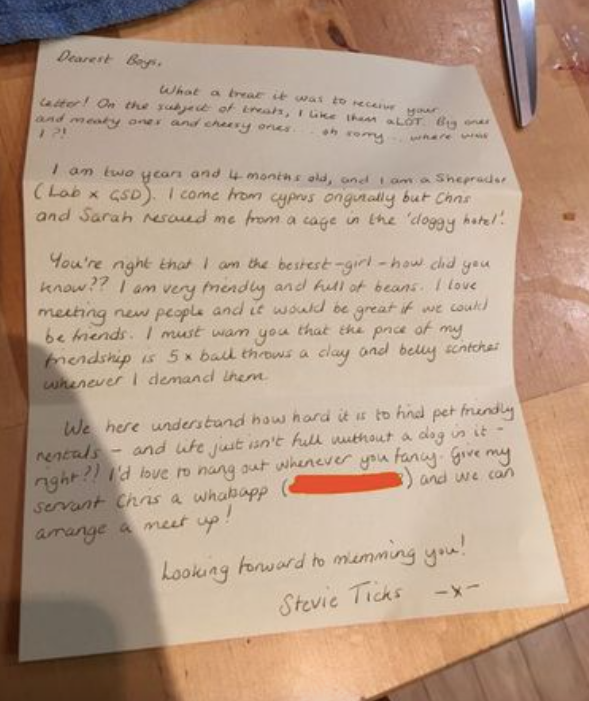 Dearest Boys,
What a treat it was to receive your
letter! On the subject of treats, I like them a LOT. Big ones
and meaty ones and cheesy ones... oh sorry... where was
I?!
I am two years and 4 months old, and I am a Sheprador
(Lab x GSD). I come from Cyprus originally but Chris
and Sarah rescued me from a cage in the 'doggy hotel'.
You're right that I am the bestest-girl - how did you
know?? I am very friendly and full of beans. I love
meeting new people and it would be great if we could
be friends. I must warn you that the price of my
friendship is 5 x ball throws a day and belly scritches
whenever I demand them.
We here understand how hard it is to find pet friendly
rentals - and life just isn't full without a dog in it -
right?! I'd love to hang out whenever you fancy. Give my
servant Chris a whatsapp ( ) and we can
arrange a meet up!
Looking forward to meeting you!
Stevie Ticks -x-